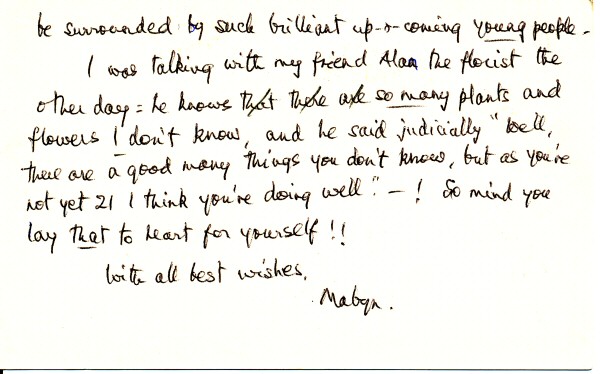 be surrounded by such brilliant up-&-coming young people -
I was talking with my friend Alan the florist the
other day = he knows that there are so many plants and
flowers I don't know, and he said judicially "Well,
there are a good many things you don't know, but as you're
not yet 21 I think you're doing well" - ! So mind you
lay that to heart for yourself !!
With all best wishes,